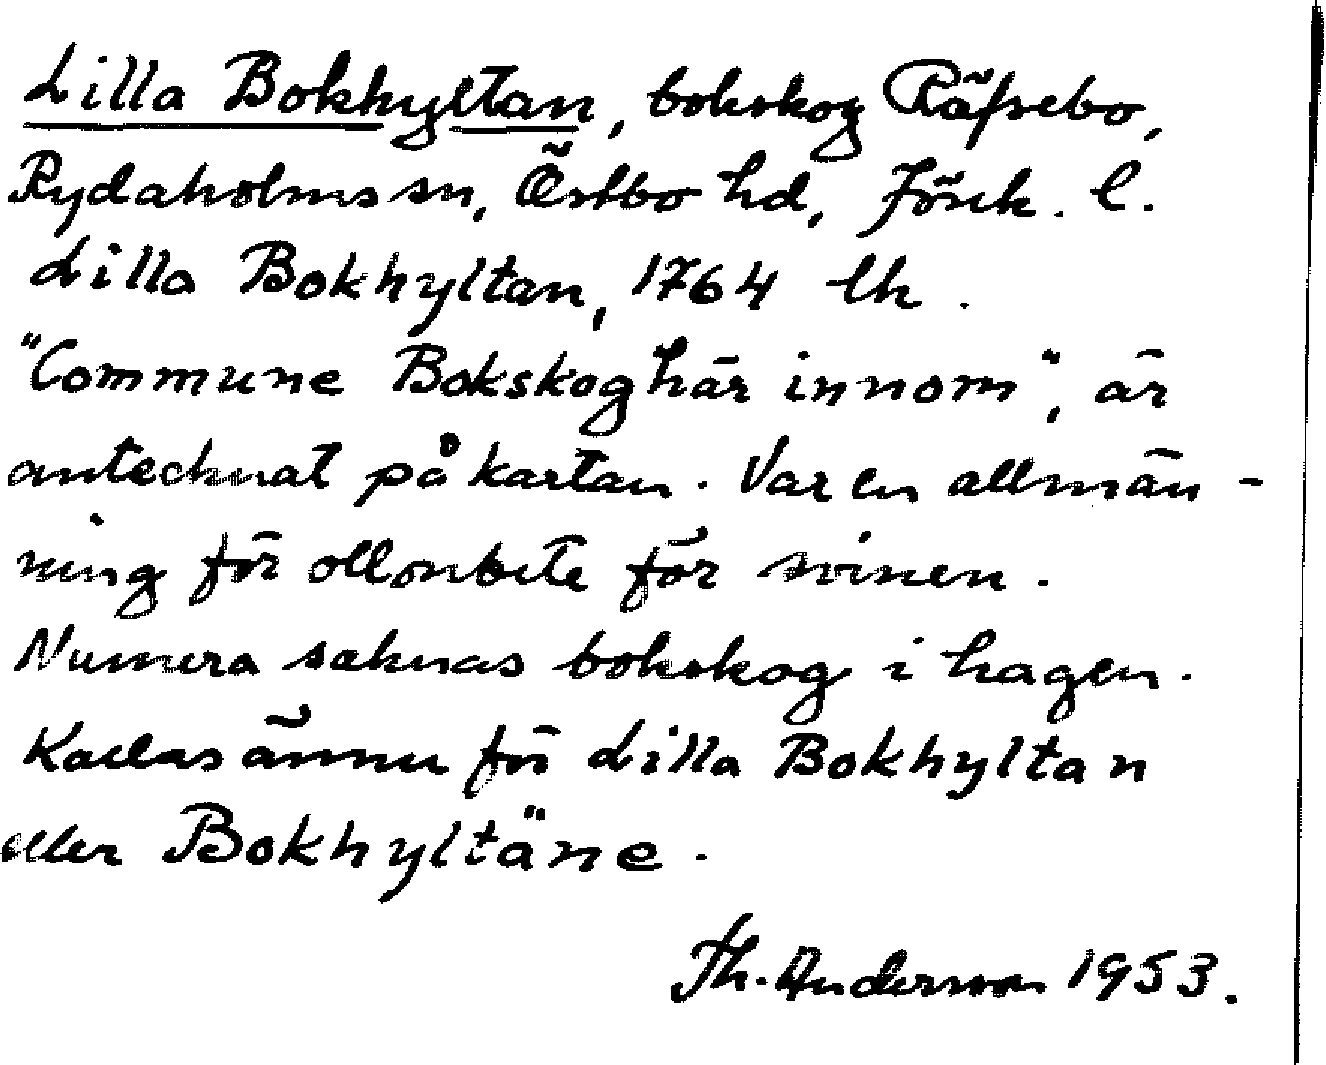 Lilla Bokhyltan, bokskog Räfsebo,
Rydaholms sn, Östbo hd, Jönk. l.
Lilla Bokhyltan, 1764 lh.
"Commune Bokskog här innom", är
antecknat på kartan. Var en allmän-
ning för ollonbete för svinen.
Numera saknas bokskog i hagen.
Kallas ännu för Lilla Bokhyltan
eller Bokhyltäne.
Th. Andersson 1953.